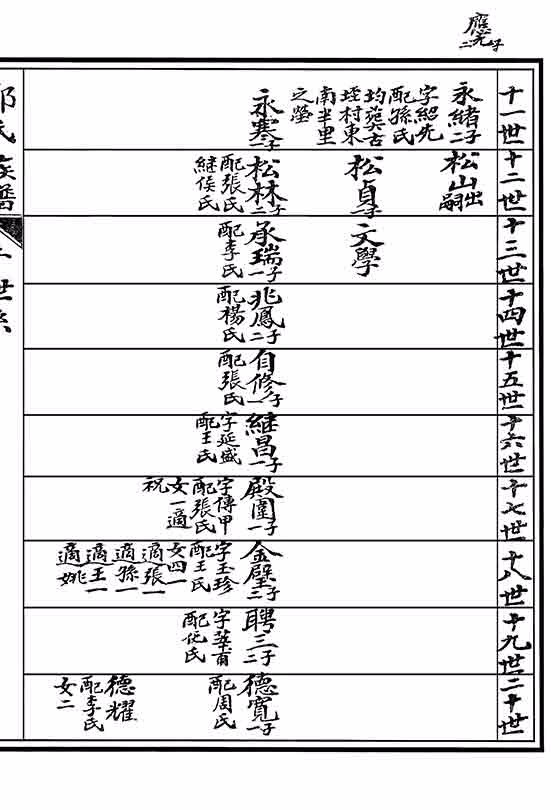 二子
十一世
永緒二子
字紹先
配孫氏
均葬古
垤村東
南半里
之塋
永寒
十二世
松山出嗣
松貞一子
松林二子
配張氏
継侯氏
十三世
文學
承瑞一子
配李氏
十四世
兆鳳二子
配楊氏
十五世
自修一子
配張氏
十六世
継昌一子
字延盛
配王氏
十七世
殿圍一子
字傳甲
配張氏
女一適
祝
十八世
金壁三子
字玉珍
配王氏
女四一
適張一
適孫一
適王一
適姚
十九世
聘三二子
字華甫
配任氏
二十世
德寬一子
配周氏
德耀
配李氏
女二
氏族譜 世系